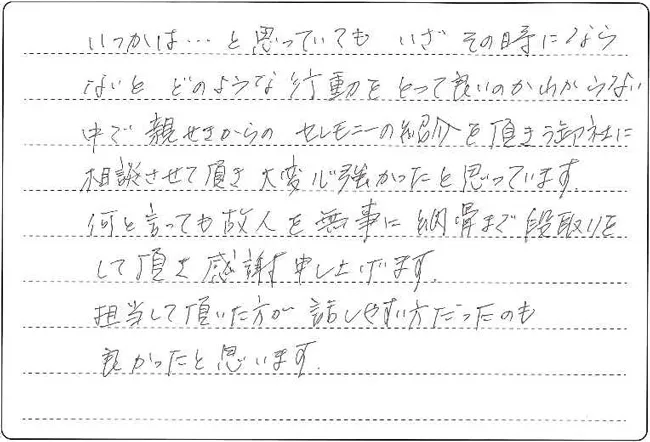 いつかは…と思っていても いざ その時になら
ないと どのような行動をとって良いのかわからない
中で 親せきからの セレモニーの紹介を頂き御社に
相談させて頂き 大変心強かったと思っています。
何と言っても故人を無事に納骨まで段取りを
して頂き感謝申し上げます。
担当して頂いた方が 話しやすい方だったのも
良かったと思います。